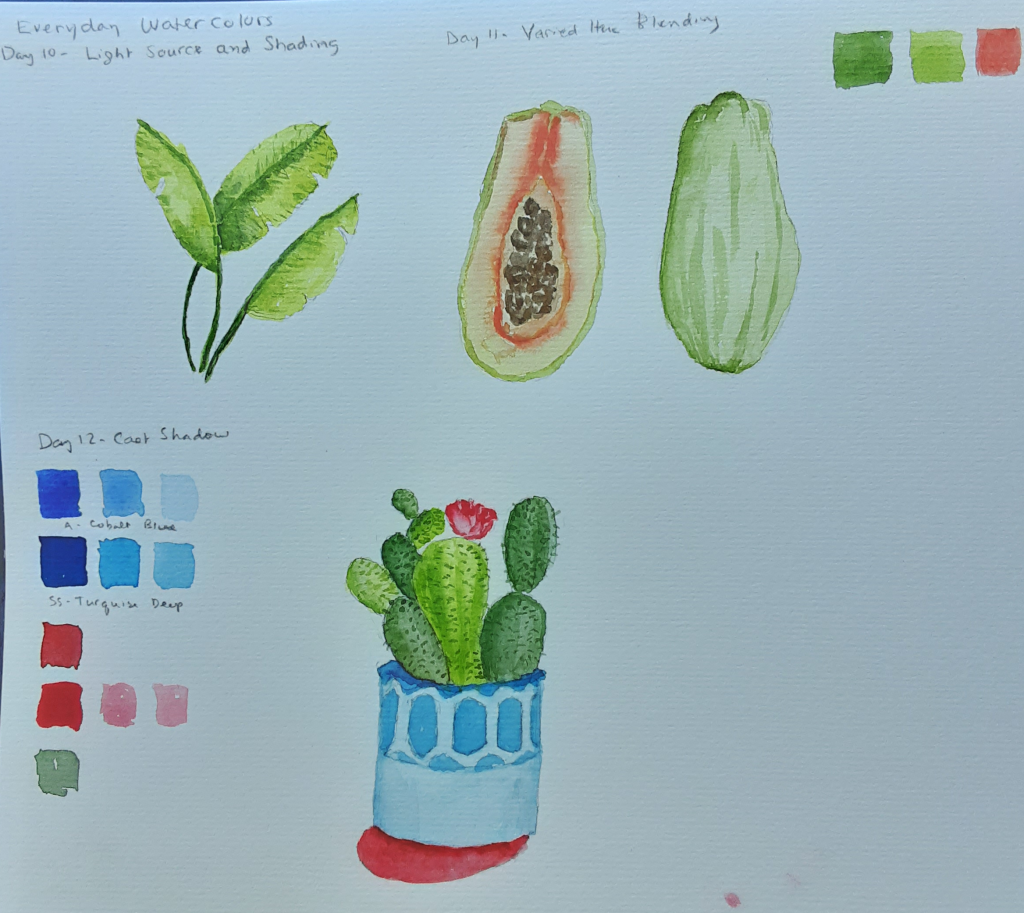 Everyday Watercolors
Day 10- Light Source and Shading
Day 11- Varied Hue Blending
Day 12- Cast Shadow
A- Cobalt Blue
SS- Turquise Deep